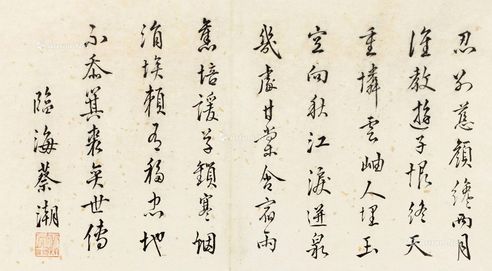 忍別慈顏纔兩月
誰教遊子恨終天
重憐雲岫人埋玉
空向秋江淚迸泉
幾處甘棠含宿雨
舊培諼草鎖寒烟
涓埃賴有移忠地
不忝箕裘奕世傳
臨海蔡潮